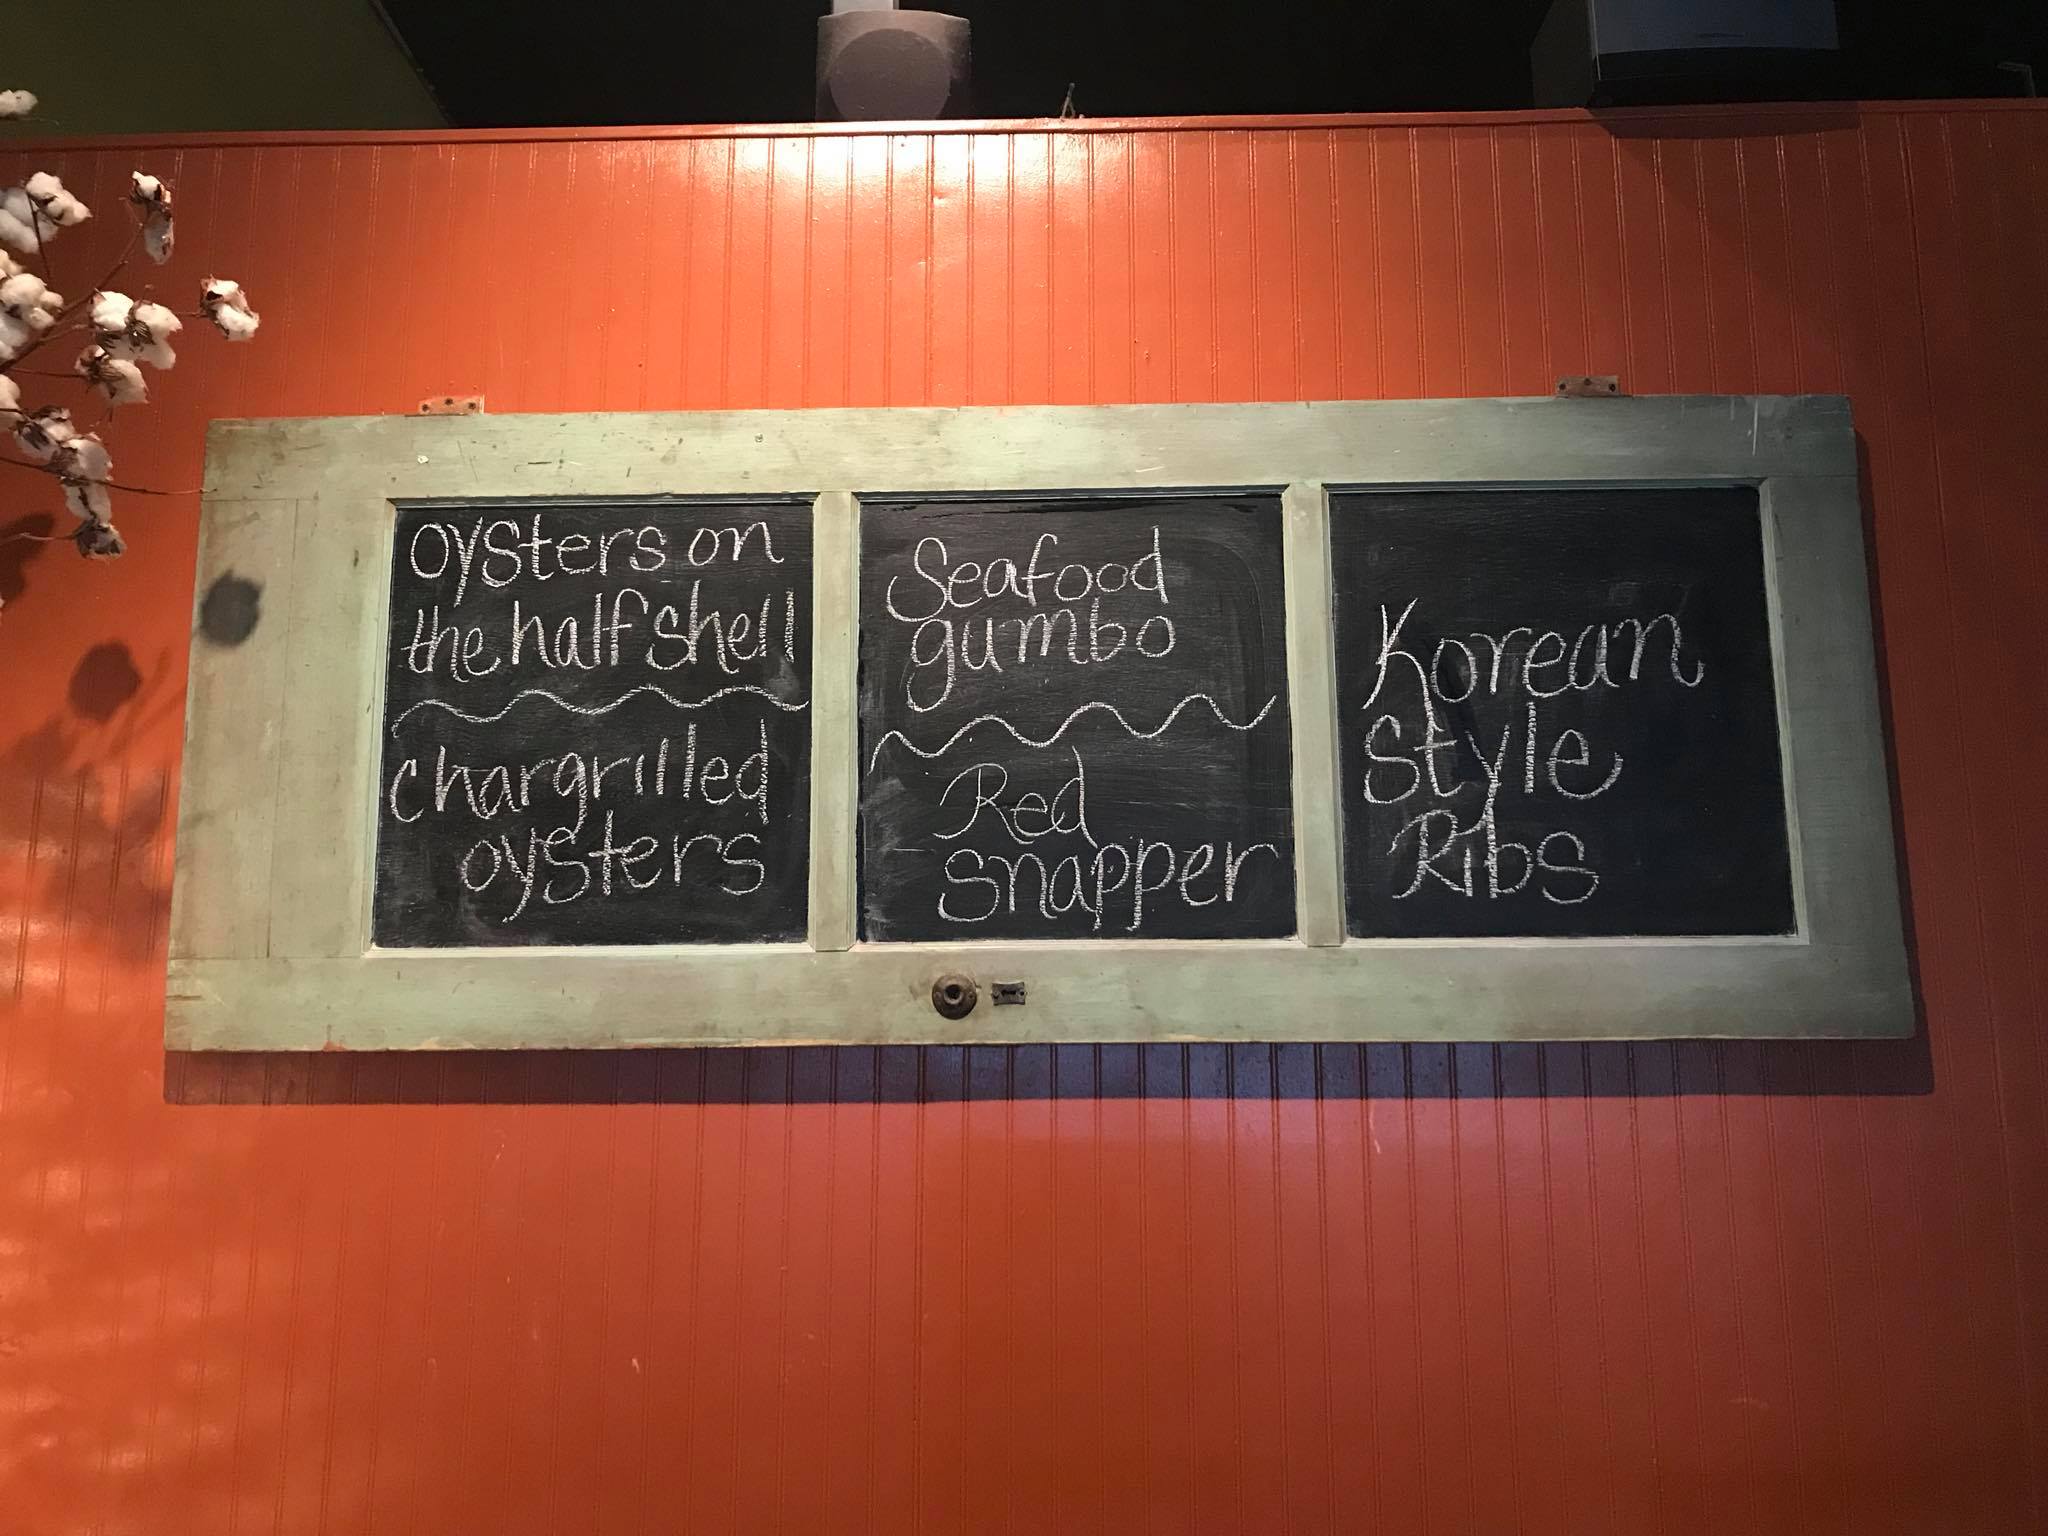 oysters on
the half shell
chargrilled
oysters
Seafood
gumbo
Red
snapper
Korean
Style
Ribs